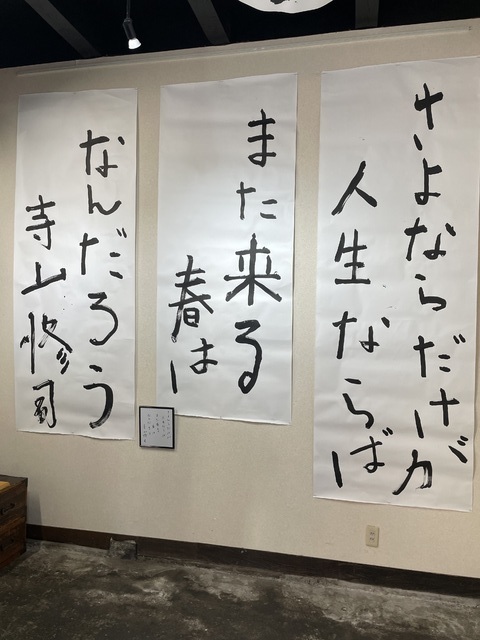 さよならだけが
人生ならば
また来る
春は
なんだろう
寺山修司